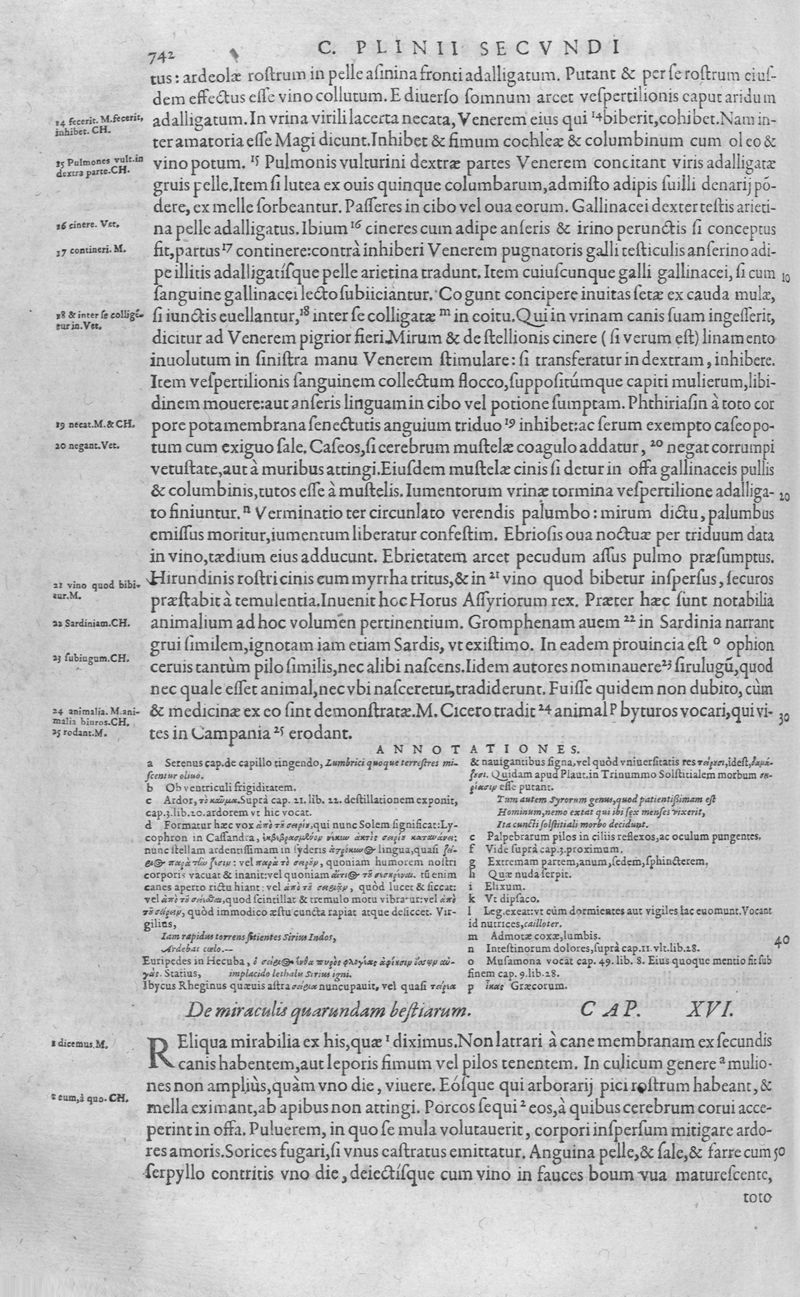 742
C. PLINII SECVNDI
tus: ardeolæ roſtrum in pelle aſinina fronti adalligatum. Putant & per ſe roſtrum eiuſ-
dem effectus eſſe vino collutum. E diuerſo ſomnum arcet veſpertilionis caput aridum
adalligatum. In vrina virili lacerta necata, Venerem eius qui 14 biberit, cohibet. Nam in-
ter amatoria eſſe Magi dicunt. Inhibet & fimum cochleæ & columbinum cum oleo &
vino potum. 15 Pulmonis vulturini dextræ partes Venerem concitant viris adalligatæ
gruis pelle. Item ſi lutea ex ouis quinque columbarum, admiſto adipis ſuilli denarij pō-
dere, ex melle ſorbeantur. Paſſeres in cibo vel oua eorum. Gallinacei dexter teſtis arieti-
na pelle adalligatus. Ibium 16 cineres cum adipe anſeris & irino perunctis ſi conceptus
fit, partus 17 continere: contrà inhiberi Venerem pugnatoris galli teſticulis anſerino adi-
pe illitis adalligatiſque pelle arietina tradunt. Item cuiuſcunque galli gallinacei, ſi cum 10
ſanguine gallinacei lecto ſubiiciantur. Cogunt concipere inuitas ſetæ ex cauda mulæ,
ſi iunctis euellantur, 18 inter ſe colligatæ m in coitu. Qui in vrinam canis ſuam ingeſſerit,
dicitur ad Venerem pigrior fieri. Mirum & de ſtellionis cinere (ſi verum eſt) linamento
inuolutum in ſiniſtra manu Venerem ſtimulare: ſi transferatur in dextram, inhibere.
Item veſpertilionis ſanguinem collectum flocco, ſuppoſitúmque capiti mulierum, libi-
dinem mouere: aut anſeris linguam in cibo vel potione ſumptam. Phthiriaſin à toto cor
pore pota membrana ſenectutis anguium triduo 19 inhibet: ac ſerum exempto caſeo po-
tum cum exiguo ſale. Caſeos, ſi cerebrum muſtelæ coagulo addatur, 20 negat corrumpi
vetuſtate, aut à muribus attingi. Eiuſdem muſtelæ cinis ſi detur in offa gallinaceis pullis
& columbinis, tutos eſſe à muſtelis. Iumentorum vrinæ tormina veſpertilione adalliga- 20
to finiuntur. n Verminatio ter circunlato verendis palumbo: mirum dictu, palumbus
emiſſus moritur, iumentum liberatur confeſtim. Ebrioſis oua noctuæ per triduum data
in vino, tædium eius adducunt. Ebrietatem arcet pecudum aſſus pulmo præſumptus.
Hirundinis roſtri cinis cum myrrha tritus, & in 21 vino quod bibetur inſperſus, ſecuros
præſtabit à temulentia. Inuenit hoc Horus Aſſyriorum rex. Præter hæc ſunt notabilia
animalium ad hoc volumen pertinentium. Gromphenam auem 22 in Sardinia narrant
grui ſimilem, ignotam iam etiam Sardis, vt exiſtimo. In eadem prouincia eſt o ophion
ceruis tantùm pilo ſimilis, nec alibi naſcens. Iidem autores nominauere 23 ſirulugū, quod
nec quale eſſet animal, nec vbi naſceretur, tradiderunt. Fuiſſe quidem non dubito, cùm
& medicinæ ex eo ſint demonſtratæ. M. Cicero tradit 24 animal p byturos vocari, qui vi- 30
tes in Campania 25 erodant.
14 fecerit. M. fecerit,
inhibet. CH.
15 Pulmones vult. in
dextra parte. CH.
16 cinere. Vet.
17 contineri. M.
18 & inter ſe colligē-
tur in. Vet.
19 necat. M. & CH.
20 negant. Vet.
21 vino quod bibi-
tur. M.
22 Sardiniam. CH.
23 ſubiugum. CH.
24 animalia. M. ani-
malia biuros. CH.
25 rodant. M.
ANNOTATIONES.
a Serenus cap. de capillo tingendo, Lumbrici quoque terreſtres mi-
ſcentur oliuo.
b Ob ventriculi frigiditatem.
c Ardor, Suprà cap. 21. lib. 22. deſtillationem exponit,
cap. 3. lib. 20. ardorem vt hic vocat.
d Formatur hæc vox qui nunc Solem ſignificat: Ly-
cophron in Caſſandra,
nunc ſtellam ardentiſſimam in ſyderis lingua, quaſi
vel quoniam humorem noſtri
corporis vacuat & inanit: vel quoniam tū enim
canes aperto rictu hiant: vel quòd lucet & ſiccat:
vel quod ſcintillat & tremulo motu vibratur: vel
quòd immodico æſtu cuncta rapiat atque deſiccet. Vir-
gilius,
Iam rapidus torrens ſitientes Sirius Indos,
Ardebat cœlo.--
Euripedes in Hecuba,
Statius, implacido lethalis Sirius igni.
Ibycus Rheginus quæuis aſtra nuncupauit, vel quaſi
& nauigantibus ſigna, vel quòd vniuerſitatis res ideſt,
Quidam apud Plaut. in Trinummo Solſtitialem morbum
eſſe putant.
Tum autem Syrorum genus, quod patientißimum eſt
Hominum, nemo extat qui ibi ſex menſes vixerit,
Ita cuncti ſolſtitiali morbo decidunt.
e Palpebrarum pilos in ciliis reflexos, ac oculum pungentes.
f Vide ſuprà cap. 3. proximum.
g Extremam partem, anum, ſedem, ſphincterem.
h Quæ nuda ſerpit.
i Elixum.
k Vt dipſaco.
l Leg. exeat: vt cùm dormientes aut vigiles lac euomunt. Vocant
id nutrices, cailloter.
m Admotæ coxæ, lumbis. 40
n Inteſtinorum dolores, ſuprà cap. 11. vlt. lib. 28.
o Muſamona vocat cap. 49. lib. 8. Eius quoque mentio fit ſub
finem cap. 9. lib. 28.
p Græcorum.
De miraculis quarundam beſtiarum. CAP. XVI.
REliqua mirabilia ex his, quæ 1 diximus. Non latrari à cane membranam ex ſecundis
canis habentem, aut leporis fimum vel pilos tenentem. In culicum genere 2 mulio-
nes non ampliùs, quàm vno die, viuere. Eóſque qui arborarij pici roſtrum habeant, &
mella eximant, ab apibus non attingi. Porcos ſequi 2 eos, à quibus cerebrum corui acce-
perint in offa. Puluerem, in quo ſe mula volutauerit, corpori inſperſum mitigare ardo-
res amoris. Sorices fugari, ſi vnus caſtratus emittatur. Anguina pelle, & ſale, & farre cum 50
ſerpyllo contritis vno die, deiectíſque cum vino in fauces boum vua matureſcente,
toto
1 dicemus. M.
2 eum, à quo. CH.